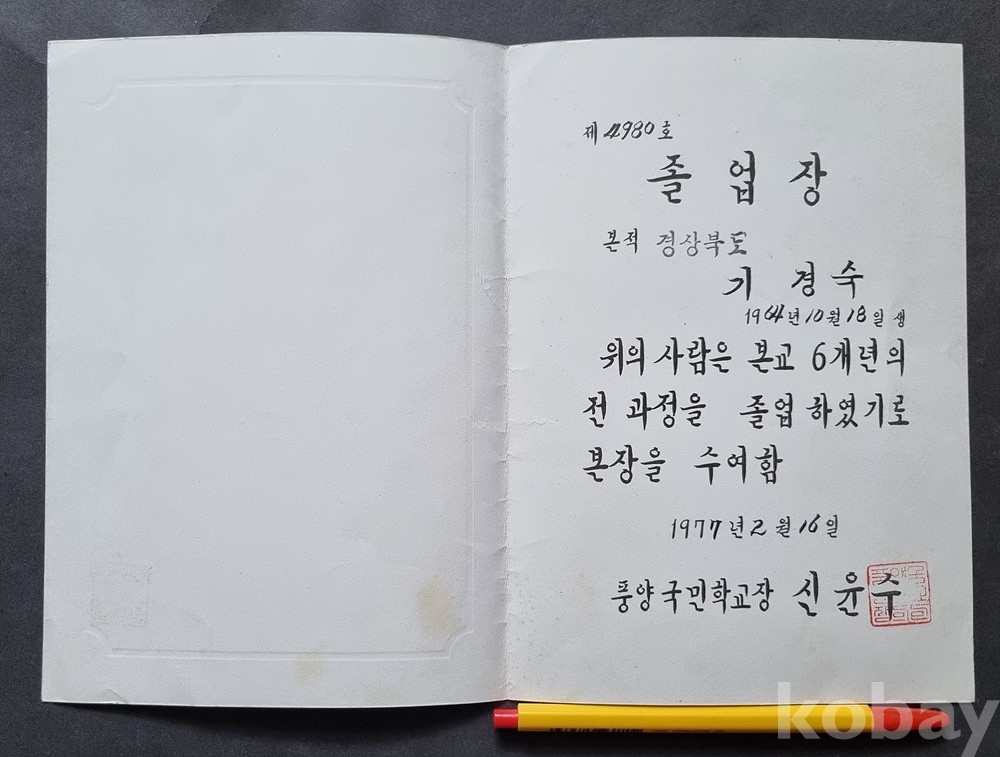 제 4980 호
졸 업 장
본적 경상북도
기 경 숙
1964년 10월 18일 생
위의 사람은 본교 6개년의
전 과정을 졸업하였기로
본장을 수여함
1977년 2월 16일
풍양국민학교장 신윤수
kobay